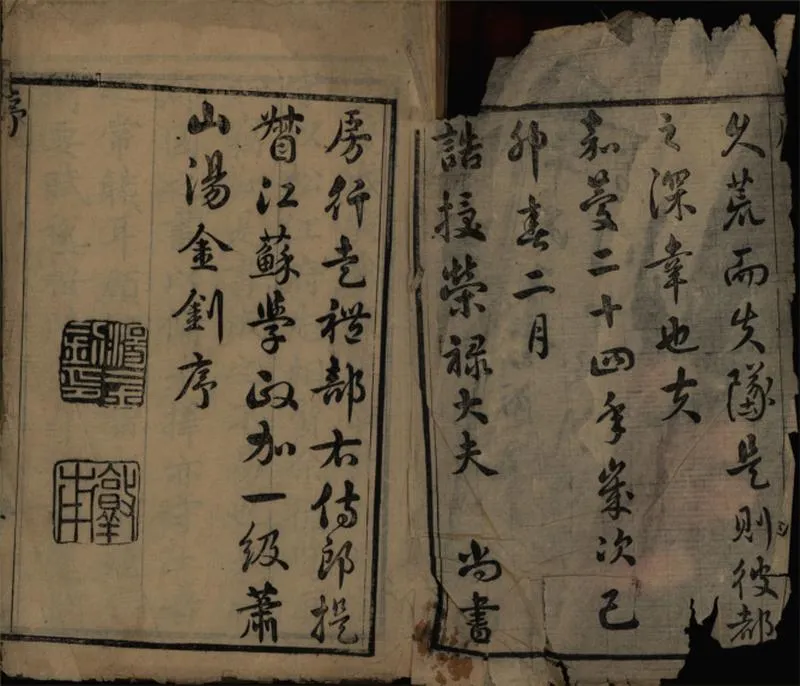 久荒而失墜是則彼都
之深幸也夫
嘉慶二十四年歲次己
卯春二月
誥授榮祿大夫 尚書
房行走禮部右侍郎提
督江蘇學政加一級蕭
山湯金釗序
湯金釗印
敦甫
序